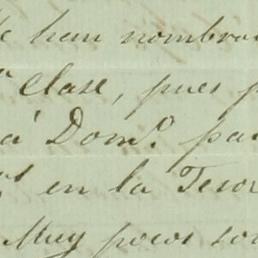 han nombra
Clase, pues p
a' Dom.º pa
en la Tesor
Muy pocos so